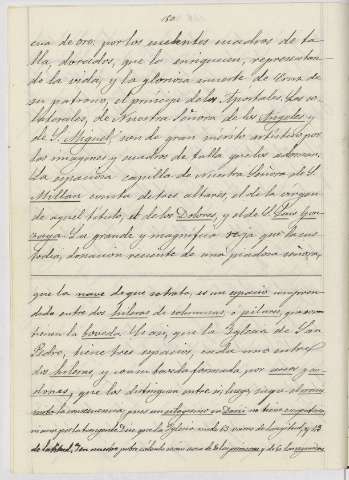 150
cua de oro; por los excelentes cuadros de ta-
lla, dorados, que lo enriquecen, representan-
do la vida y la gloriosa muerte de Cruz de
su patrono, el príncipe de los Apóstoles. Los co-
laterales, de Nuestra Señora de los Angeles y
de S. Miguel, son de gran mérito artístico por
las imágenes y cuadros de talla que los adornan.
La espaciosa capilla de Nuestra Señora de S.
Millan consta de tres altares, el de la virgen
de aquel título, el de los Dolores, y el de S. Luis Gon-
zaga. La grande y magnífica reja que la cus-
todia, donación reciente de una piadosa señora,
que la nave de que se trata, es un espacio compren-
dido entre dos hileras de columnas, o pilares, que sos-
tienen la bóveda. Y así, que la Iglesia de San
Pedro, tiene tres espacios, cada uno entre
dos hileras, y
que los distinguen entre sí; luego sigue
la consecuencia, pues
que la Iglesia mide 63 varas de longitud, y 43
de latitud,